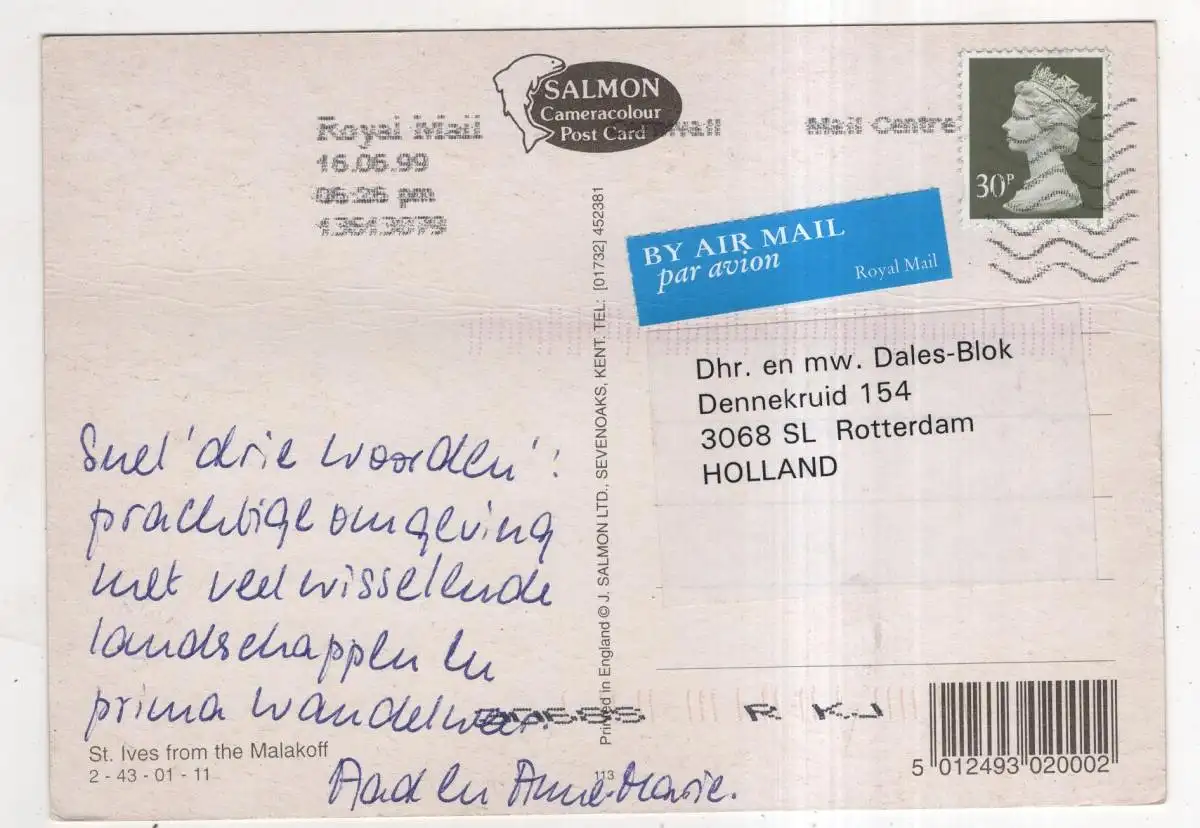 SALMON
Cameracolour
Post Card
Royal Mail
Mail Centre
16.06.99
06:26 pm
13513079
30P
BY AIR MAIL
par avion
Royal Mail
Dhr. en mw. Dales-Blok
Dennekruid 154
3068 SL Rotterdam
HOLLAND
Snel 'drie woorden':
prachtige omgeving
met veel wisselende
landschappen en
prima wandelweer.
Aad en Anne-Marie.
St. Ives from the Malakoff
2 - 43 - 01 - 11
Printed in England © J. SALMON LTD., SEVENOAKS, KENT. TEL: [01732] 452381
113
R KJ
5 012493 020002